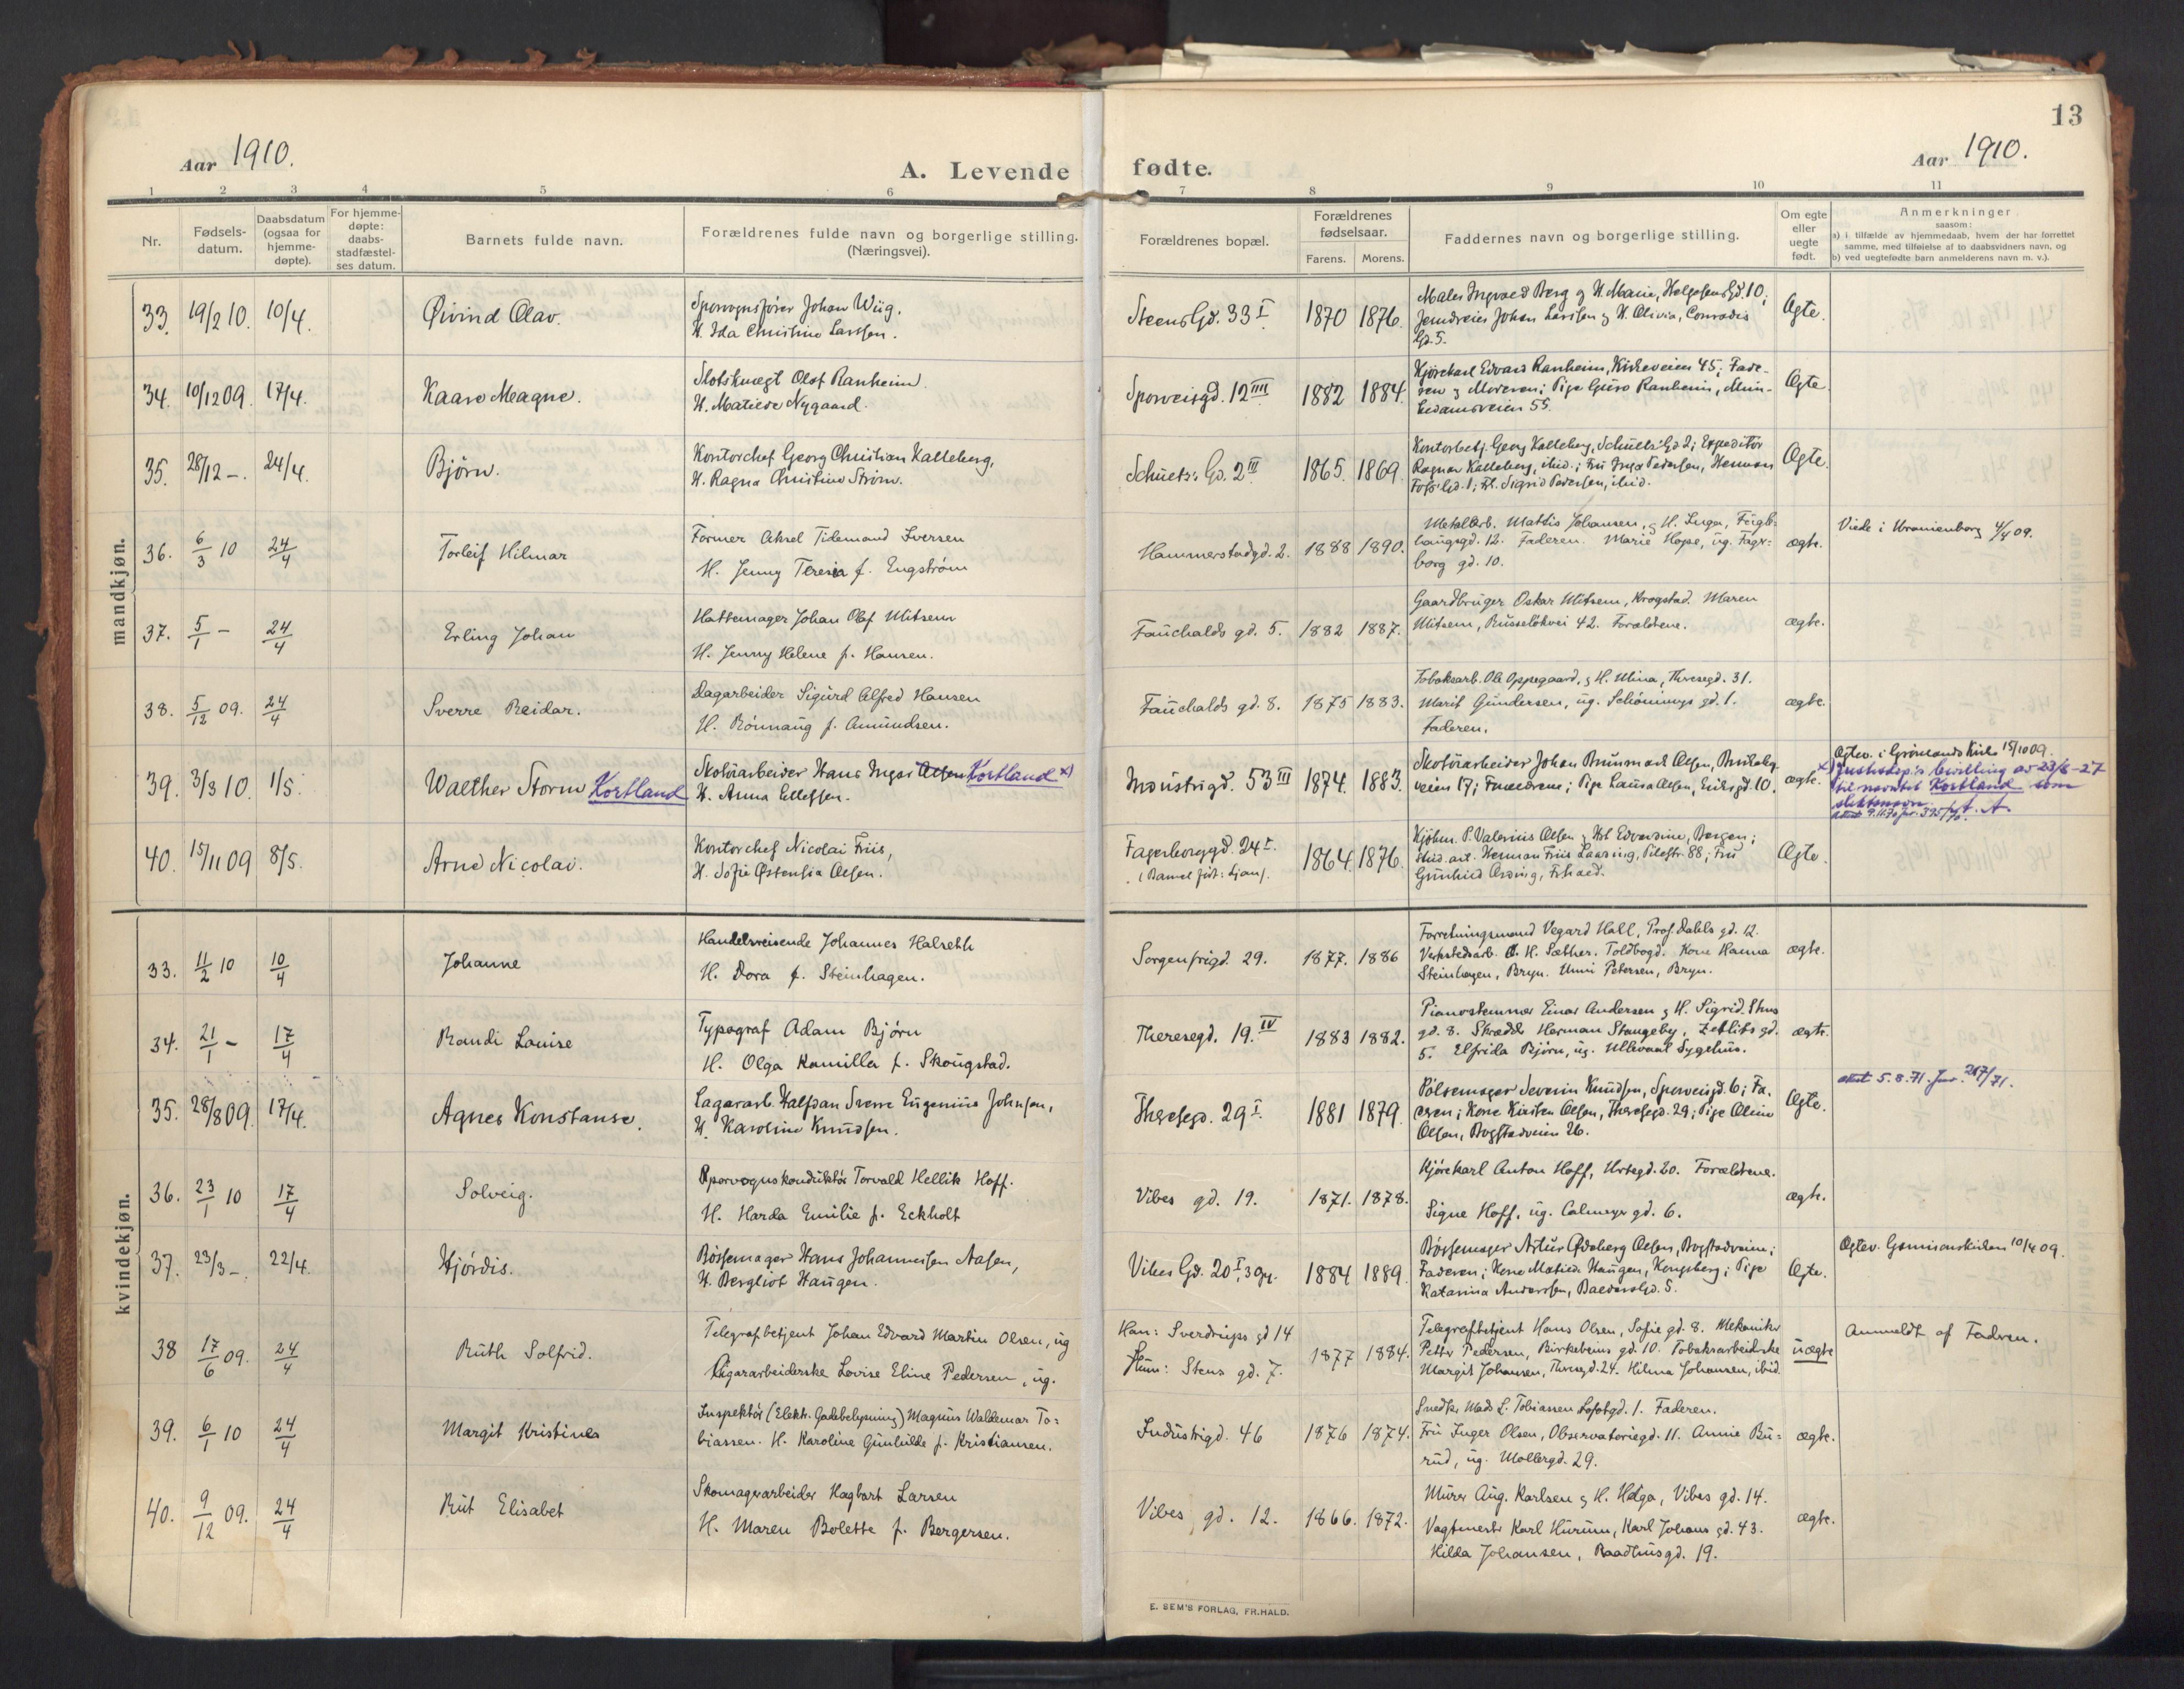 13
Aar 1910.
A. Levende fødte.
Aar 1910.
1 2 3 4 5 6 7 8 9 10 11
Nr.
Fødsels-
datum.
Daabsdatum
(ogsaa for
hjemme-
døpte).
For hjemme-
døpte:
daabs-
stadfæstel-
ses datum.
Barnets fulde navn.
Forældrenes fulde navn og borgerlige stilling.
(Næringsvei).
Forældrenes bopæl.
Forældrenes
fødselsaar.
Farens. Morens.
Faddernes navn og borgerlige stilling.
Om egte
eller
uegte
født.
Anmerkninger
saasom:
a) i tilfælde av hjemmedaab, hvem der har forrettet
samme, med tilføielse af to daabsvidners navn, og
b) ved uegtefødte barn anmelderens navn m. v.).
mandkjøn.
33. 19/2 10. 10/4. Øivind Olav.
Sporvognsfører Johan Wiig.
H. Ida Christine Larssen.
Steens Gd. 33 I 1870 1876.
Maler Ingvald Berg og H. Marie, Helgesens Gd. 10;
Jerndreier Johan Larssen og H. Olivia, Conradis
Gd. 5.
Egte.
34. 10/12 09. 17/4. Kaare Magne.
Slotsknegt Olof Ranheim.
H. Matilde Nygaard.
Sporveisgd. 12 IIII 1882 1884.
Kjørekarl Edvard Ranheim, Kirkeveien 45; Fade-
ren og Moderen; Pige Guro Ranheim, Mun-
kedamsveien 55.
Egte.
35. 28/12 -. 24/4. Bjørn.
Kontorchef Georg Christian Kalleberg,
H. Ragna Christine Strøm.
Schultz's Gd. 2 III 1865. 1869.
Kontorbetj. Georg Kalleberg, Schultz' Gd 2; Expeditør
Ragnar Kalleberg, ibid.; Fru Inga Pedersen, Herman
Foss' Gd. 1; Frk. Sigrid Pedersen, ibid.
Egte.
36. 6/3 10 24/4 Torleif Hilmar
Former Aksel Tidemand Iversen
H. Jenny Teresia f. Engstrøm
Hammerstadgd. 2. 1888 1890.
Metallarb. Mattis Johansen, og H. Inga, Fugle-
haugsgd. 12. Faderen. Marie Hope, ug. Fager-
borg gd. 10.
ægte.
Viede i Uranienborg 4/4 09.
37. 5/1 - 24/4 Erling Johan
Hattemager Johan Olaf Mitsem
H. Jenny Helene f. Hansen.
Fauchalds gd. 5. 1882 1887.
Gaardbruger Oskar Mitsem, Krogstad. Maren
Mitsem, Russeløkvei 42. Forældrene.
ægte.
38. 5/12 09. 24/4 Sverre Reidar.
Dagarbeider Sigurd Alfred Hansen
H. Rønnaug f. Amundsen.
Fauchalds gd. 8. 1875 1883.
Tobaksarb. Ole Oppegaard, og H. Mina, Thresegd. 31.
Marit Gundersen, ug. Schønings gd. 1.
Faderen.
ægte.
39. 3/3 10. 1/5. Walther Storm Kortland
Skotøiarbeider Hans Ingar Olsen Kortland x)
H. Anna Ellefsen.
Industrigd. 53 III 1874. 1883.
Skotøiarbeider Johan Brunmark Olsen,
veien 17; Forældrene; Pige Laura Olsen, Eriksgd. 10.
ægte.
Egtev. i Grønlands Kirke 15/10 09.
x) Justisdep's bevilling av 23/6-27
til navnet Kortland som
slektsnavn.
attest 9.11.70 jnr. 395/70. A.
40. 15/11 09 8/5. Arne Nicolai.
Kontorchef Nicolai Friis,
H. Sofie Østensia Olsen.
Fagerborggd. 24 I.
(Barnet født: Ljan).
1864. 1876.
Kjøbm. P. Valerius Olsen og Frk Edvardine, Bergen;
stud. art. Herman Friis Laasing, Pilestr. 88; Fru
Gunhild
Egte.
kvindekjøn.
33. 11/2 10 10/4 Johanne
Handelsreisende Johannes Halseth
H. Dora f. Steinhagen.
Sorgenfrigd. 29. 1877. 1886
Forretningsmand Vegard Hall, Prof. Dahls gd. 12.
Verkstedsarb. O. H. Sæther. Toldbogd. Kone Hanna
Steinhagen, Bryn. Unni Petersen, Bryn.
ægte.
34. 21/1 - 17/4 Randi Louise
Typograf Adam Bjørn
H. Olga Kamilla f. Skougstad.
Theresegd. 19. IV 1883 1882.
Pianostemmer Einar Andersen og H. Sigrid. Stens
gd. 8. Skrædder Herman Stangeby, Zetlitz gd.
5. Elfrida Bjørn, ug. Ullevaal Sygehus.
ægte.
35. 28/8 09. 17/4. Agnes Konstanse.
Lagerarb. Halfdan Sverre Eugenius Johnsen,
H. Karoline Knudsen.
Theresegd. 29 I. 1881 1879.
Pølsemager Severin Knudsen, Sporveisgd. 6; Fa-
deren; Kone Kirsten Olsen, Theresegd. 29; Pige Oline
Olsen, Bogstadveien 26.
Egte.
attest 5.8.71. Jnr. 217/71.
36. 23/1 10 17/4 Solveig.
Sporvognskonduktør Torvald Hellik Hoff.
H. Harda Emilie f. Eckholt
Vibes gd. 19. 1871. 1878.
Kjørekarl Anton Hoff, Urtegd. 20. Forældrene.
Signe Hoff, ug. Calmeyer gd. 6.
ægte.
37. 23/3 -. 22/4. Hjørdis.
Bøssemager Hans Johannessen Aasen,
H. Bergliot Haugen.
Vibes Gd. 20 I, 3 opg. 1884 1889.
Bøssemager Artur Olsen, Bogstadveien;
Faderen; Kone Matilde Haugen, Kongsberg; Pige
Katarina Anderssen, Baldersgd. 5.
Egte.
Egtev. Garnisonskirken 10/4 09.
38 17/6 09. 24/4 Ruth Solfrid.
Telegrafbetjent Johan Edvard Martin Olsen, ug
Sigararbeiderske Lovise Eline Pedersen, ug.
Han: Sverdrups gd 14
Hun: Stens gd. 7.
1877 1884.
Telegrafbetjent Hans Olsen, Sofie gd. 8. Mekaniker
Petter Pedersen, Birkebeins gd. 10. Tobaksarbeiderske
Margit Johansen, Thresgd. 24. Hilma Johansen, ibid.
uægte
Anmeldt af Faderen.
39. 6/1 10 24/4 Margit Kristinea
Inspektør (Elektr. Gadebelysning) Magnus Waldemar To=
biassen. H. Karoline Gunhilde f. Kristiansen.
Industrigd. 46 1876 1874.
Snedker Mads L. Tobiassen Lofotgd. 1. Faderen.
Fru Inger Olsen, Observatoriegd. 11. Annie Bu=
rud, ug. Møllergd. 29.
ægte.
40. 9/12 09. 24/4 Rut Elisabet
Skomagerarbeider Hagbart Larsen
H. Maren Bolette f. Bergersen.
Vibes gd. 12. 1866. 1872.
Murer Aug. Karlsen og H. Helga, Vibes gd. 14.
Vagtmester Karl Hurum, Karl Johans gd. 43.
Hilda Johansen, Raadhusgd. 19.
ægte.
E. SEM'S FORLAG, FR.HALD.